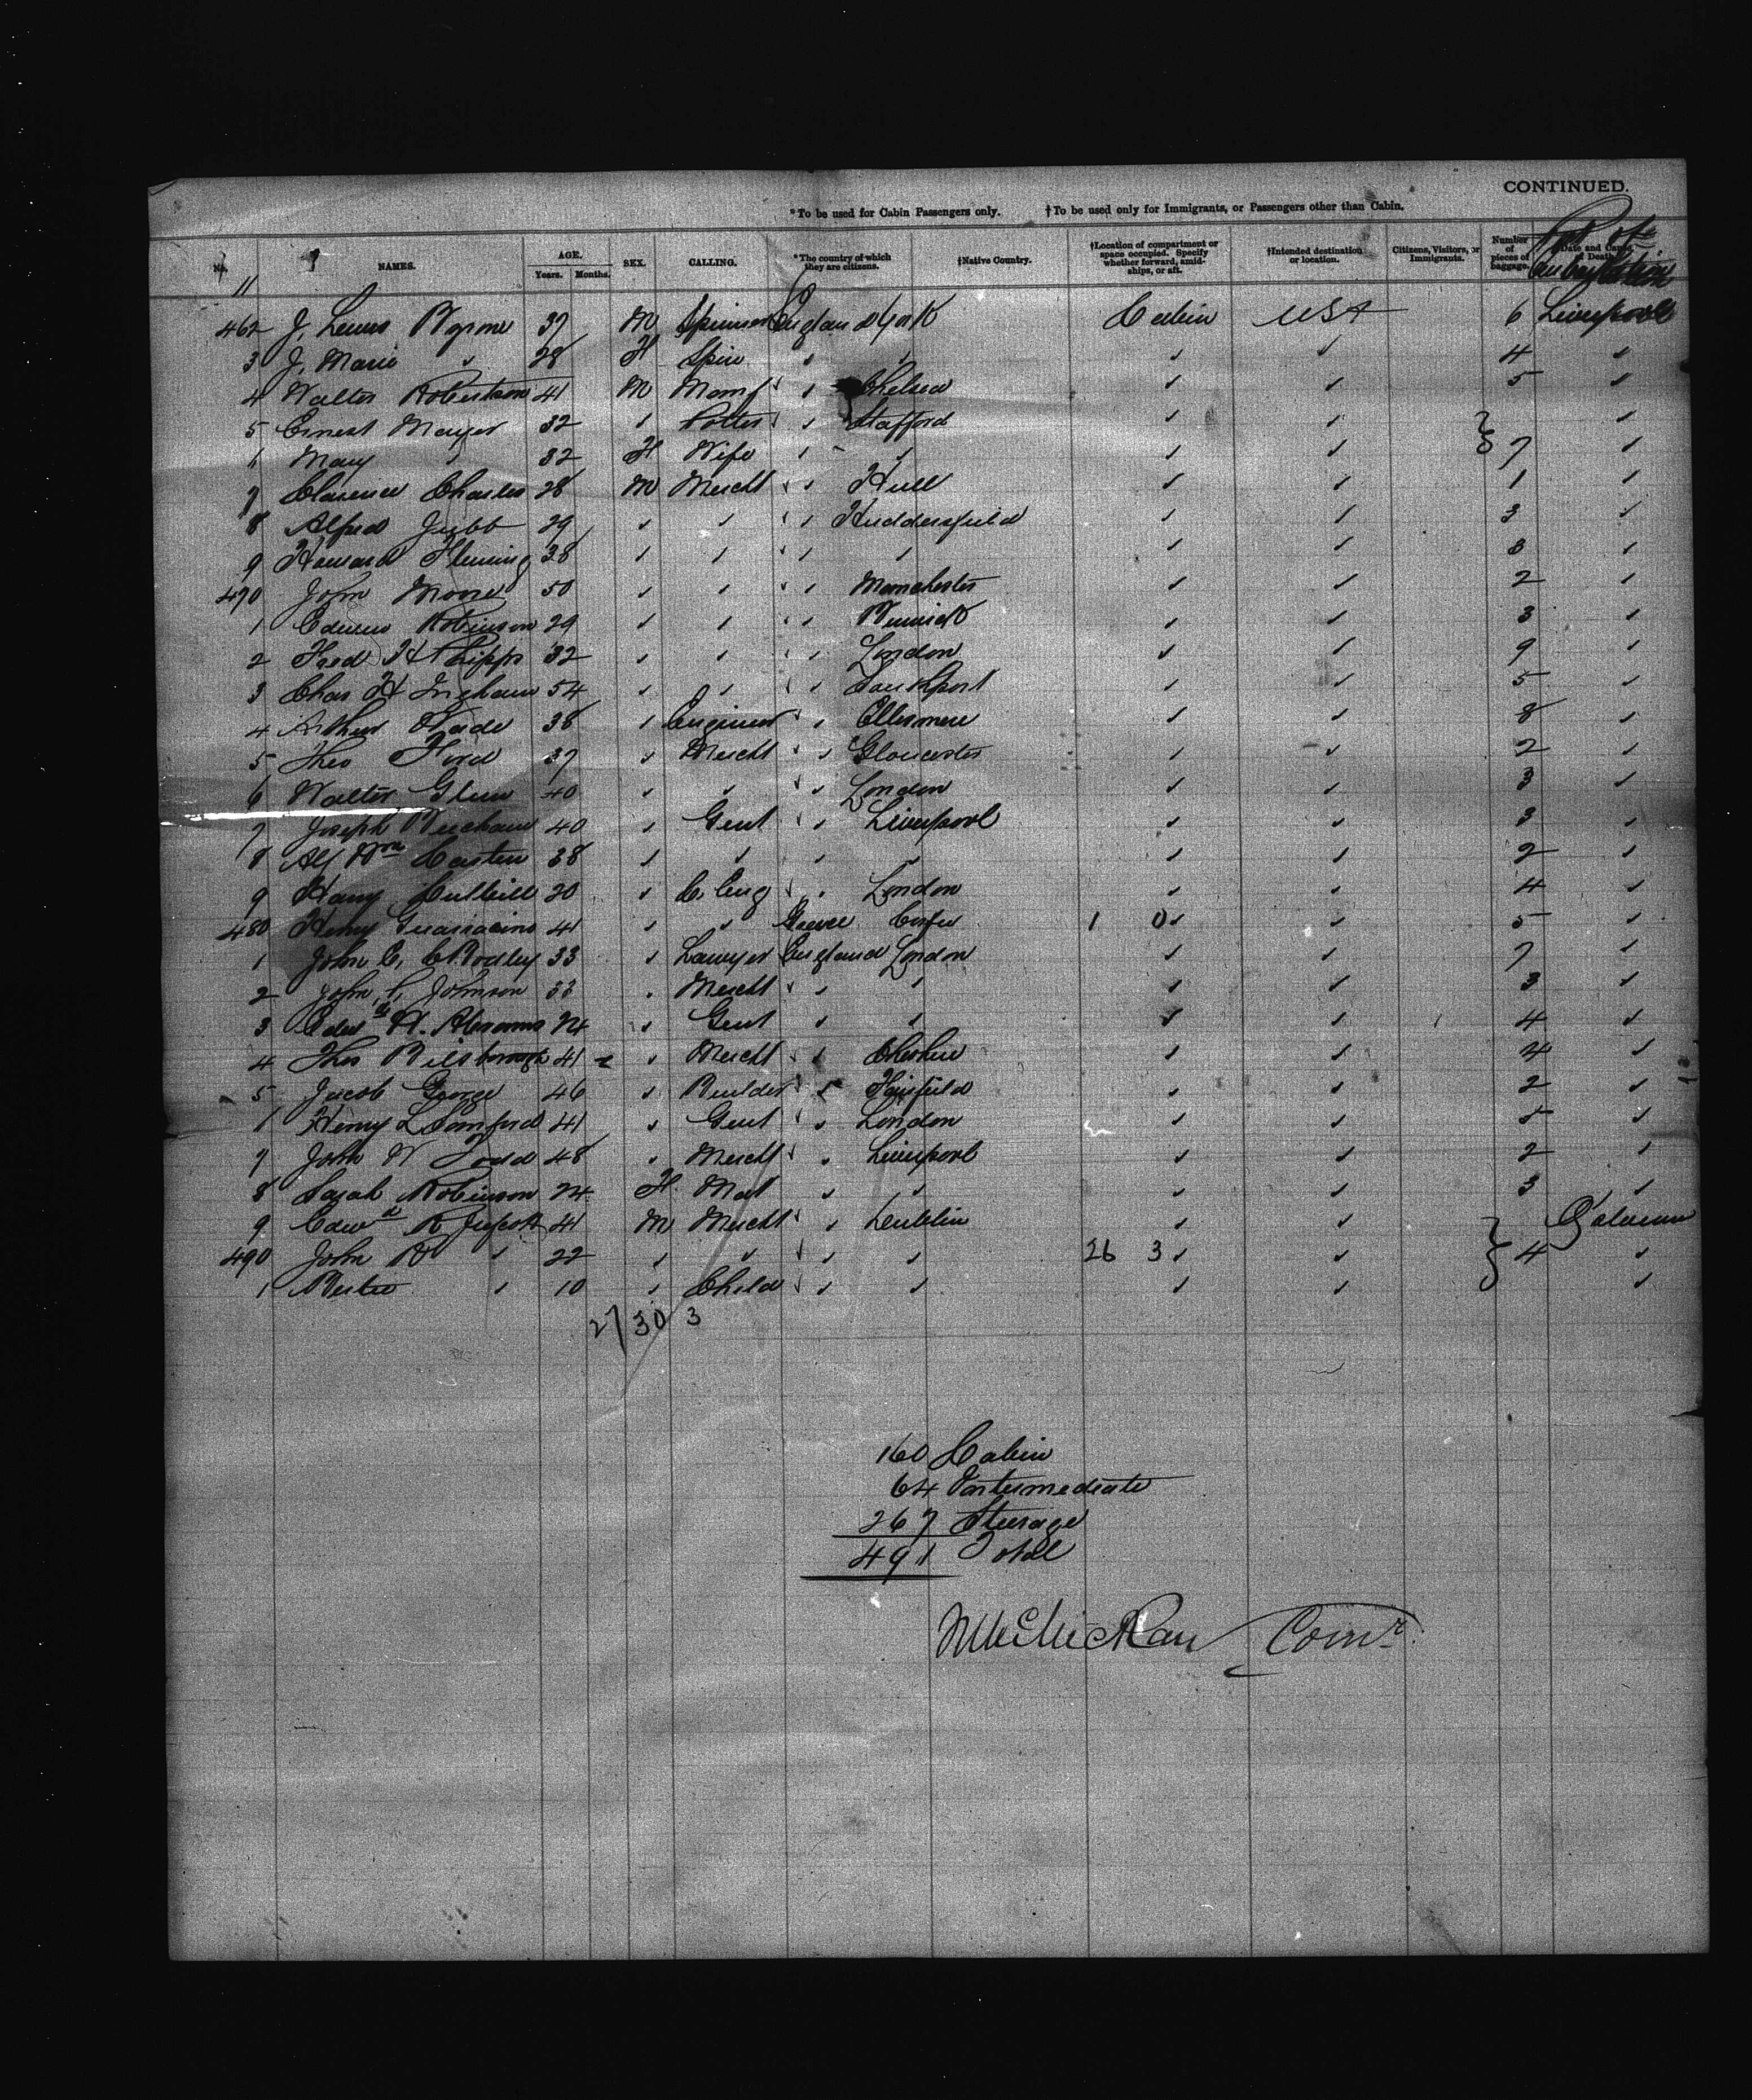 CONTINUED.
*To be used for Cabin Passengers only. †To be used only for Immigrants, or Passengers other than Cabin.
No. NAMES. AGE. Years. Months. SEX. CALLING. *The country of which they are citizens. †Native Country. †Location of compartment or space occupied. Specify whether forward, amidships, or aft. †Intended destination or location. Citizens, Visitors, or Immigrants. Number of pieces of baggage. Date and Cause of Death. Port of embarkation
11
462 J. Lewis 37 M England York Cabin USA 6 Liverpool
3 J. Marie ✓ 28 F ✓ ✓ ✓ ✓ 4 ✓
4 Walter Robertson 41 M Manf ✓ Chelsea ✓ ✓ 5 ✓
5 Ernest Mayer 32 ✓ Potter ✓ Stafford ✓ ✓ ✓
6 Mary ✓ 32 F Wife ✓ ✓ ✓ ✓ 7 ✓
7 Clarence Charles 28 M Mercht ✓ Hull ✓ ✓ 1 ✓
8 Alfred Jubb 29 ✓ ✓ ✓ Huddersfield ✓ ✓ 3 ✓
9 Howard Fleming 38 ✓ ✓ ✓ ✓ ✓ ✓ 3 ✓
470 John Moore 50 ✓ ✓ ✓ Manchester ✓ ✓ 2 ✓
1 Robinson 29 ✓ ✓ ✓ ✓ ✓ 3 ✓
2 Fred H Phipps 32 ✓ ✓ ✓ London ✓ ✓ 9 ✓
3 Chas H Ingham 54 ✓ ✓ ✓ Southport ✓ ✓ 5 ✓
4 Arthur 38 ✓ Engineer ✓ Ellesmere ✓ ✓ 8 ✓
5 Theo Ford 37 ✓ Mercht ✓ Gloucester ✓ ✓ 2 ✓
6 Walter Glew 40 ✓ ✓ ✓ London ✓ ✓ 3 ✓
7 Joseph 40 ✓ Gent ✓ Liverpool ✓ ✓ 3 ✓
8 Alf Wm 38 ✓ ✓ ✓ ✓ ✓ ✓ 2 ✓
9 Harry 20 ✓ C. Eng ✓ London ✓ ✓ 4 ✓
480 Henry Guarracino 41 ✓ ✓ Greece Corfu 1 0 ✓ ✓ 5 ✓
1 John E. C. Bodley 33 ✓ Lawyer England London ✓ ✓ 7 ✓
2 John Johnson 33 ✓ Mercht ✓ ✓ ✓ ✓ 3 ✓
3 Edwd H. Abrams 24 ✓ Gent ✓ ✓ ✓ ✓ 4 ✓
4 Thos Bilsborough 41 ✓ Mercht ✓ Cheshire ✓ ✓ 4 ✓
5 Jacob George 46 ✓ Builder ✓ Fairfield ✓ ✓ 2 ✓
6 Henry L Samford 41 ✓ Gent ✓ London ✓ ✓ 5 ✓
7 John W Todd 48 ✓ Mercht ✓ Liverpool ✓ ✓ 2 ✓
8 Sarah Robinson 24 F Mat ✓ ✓ ✓ ✓ 3 ✓
9 Edwd R 41 M Mercht ✓ Dublin ✓ ✓
490 John R ✓ 22 ✓ ✓ ✓ ✓ 26 3 ✓ ✓ 4 ✓
1 ✓ 10 ✓ Child ✓ ✓ ✓ ✓ ✓
27 30 3
160 Cabin
64 Intermediate
267 Steerage
491 Total
Comr.